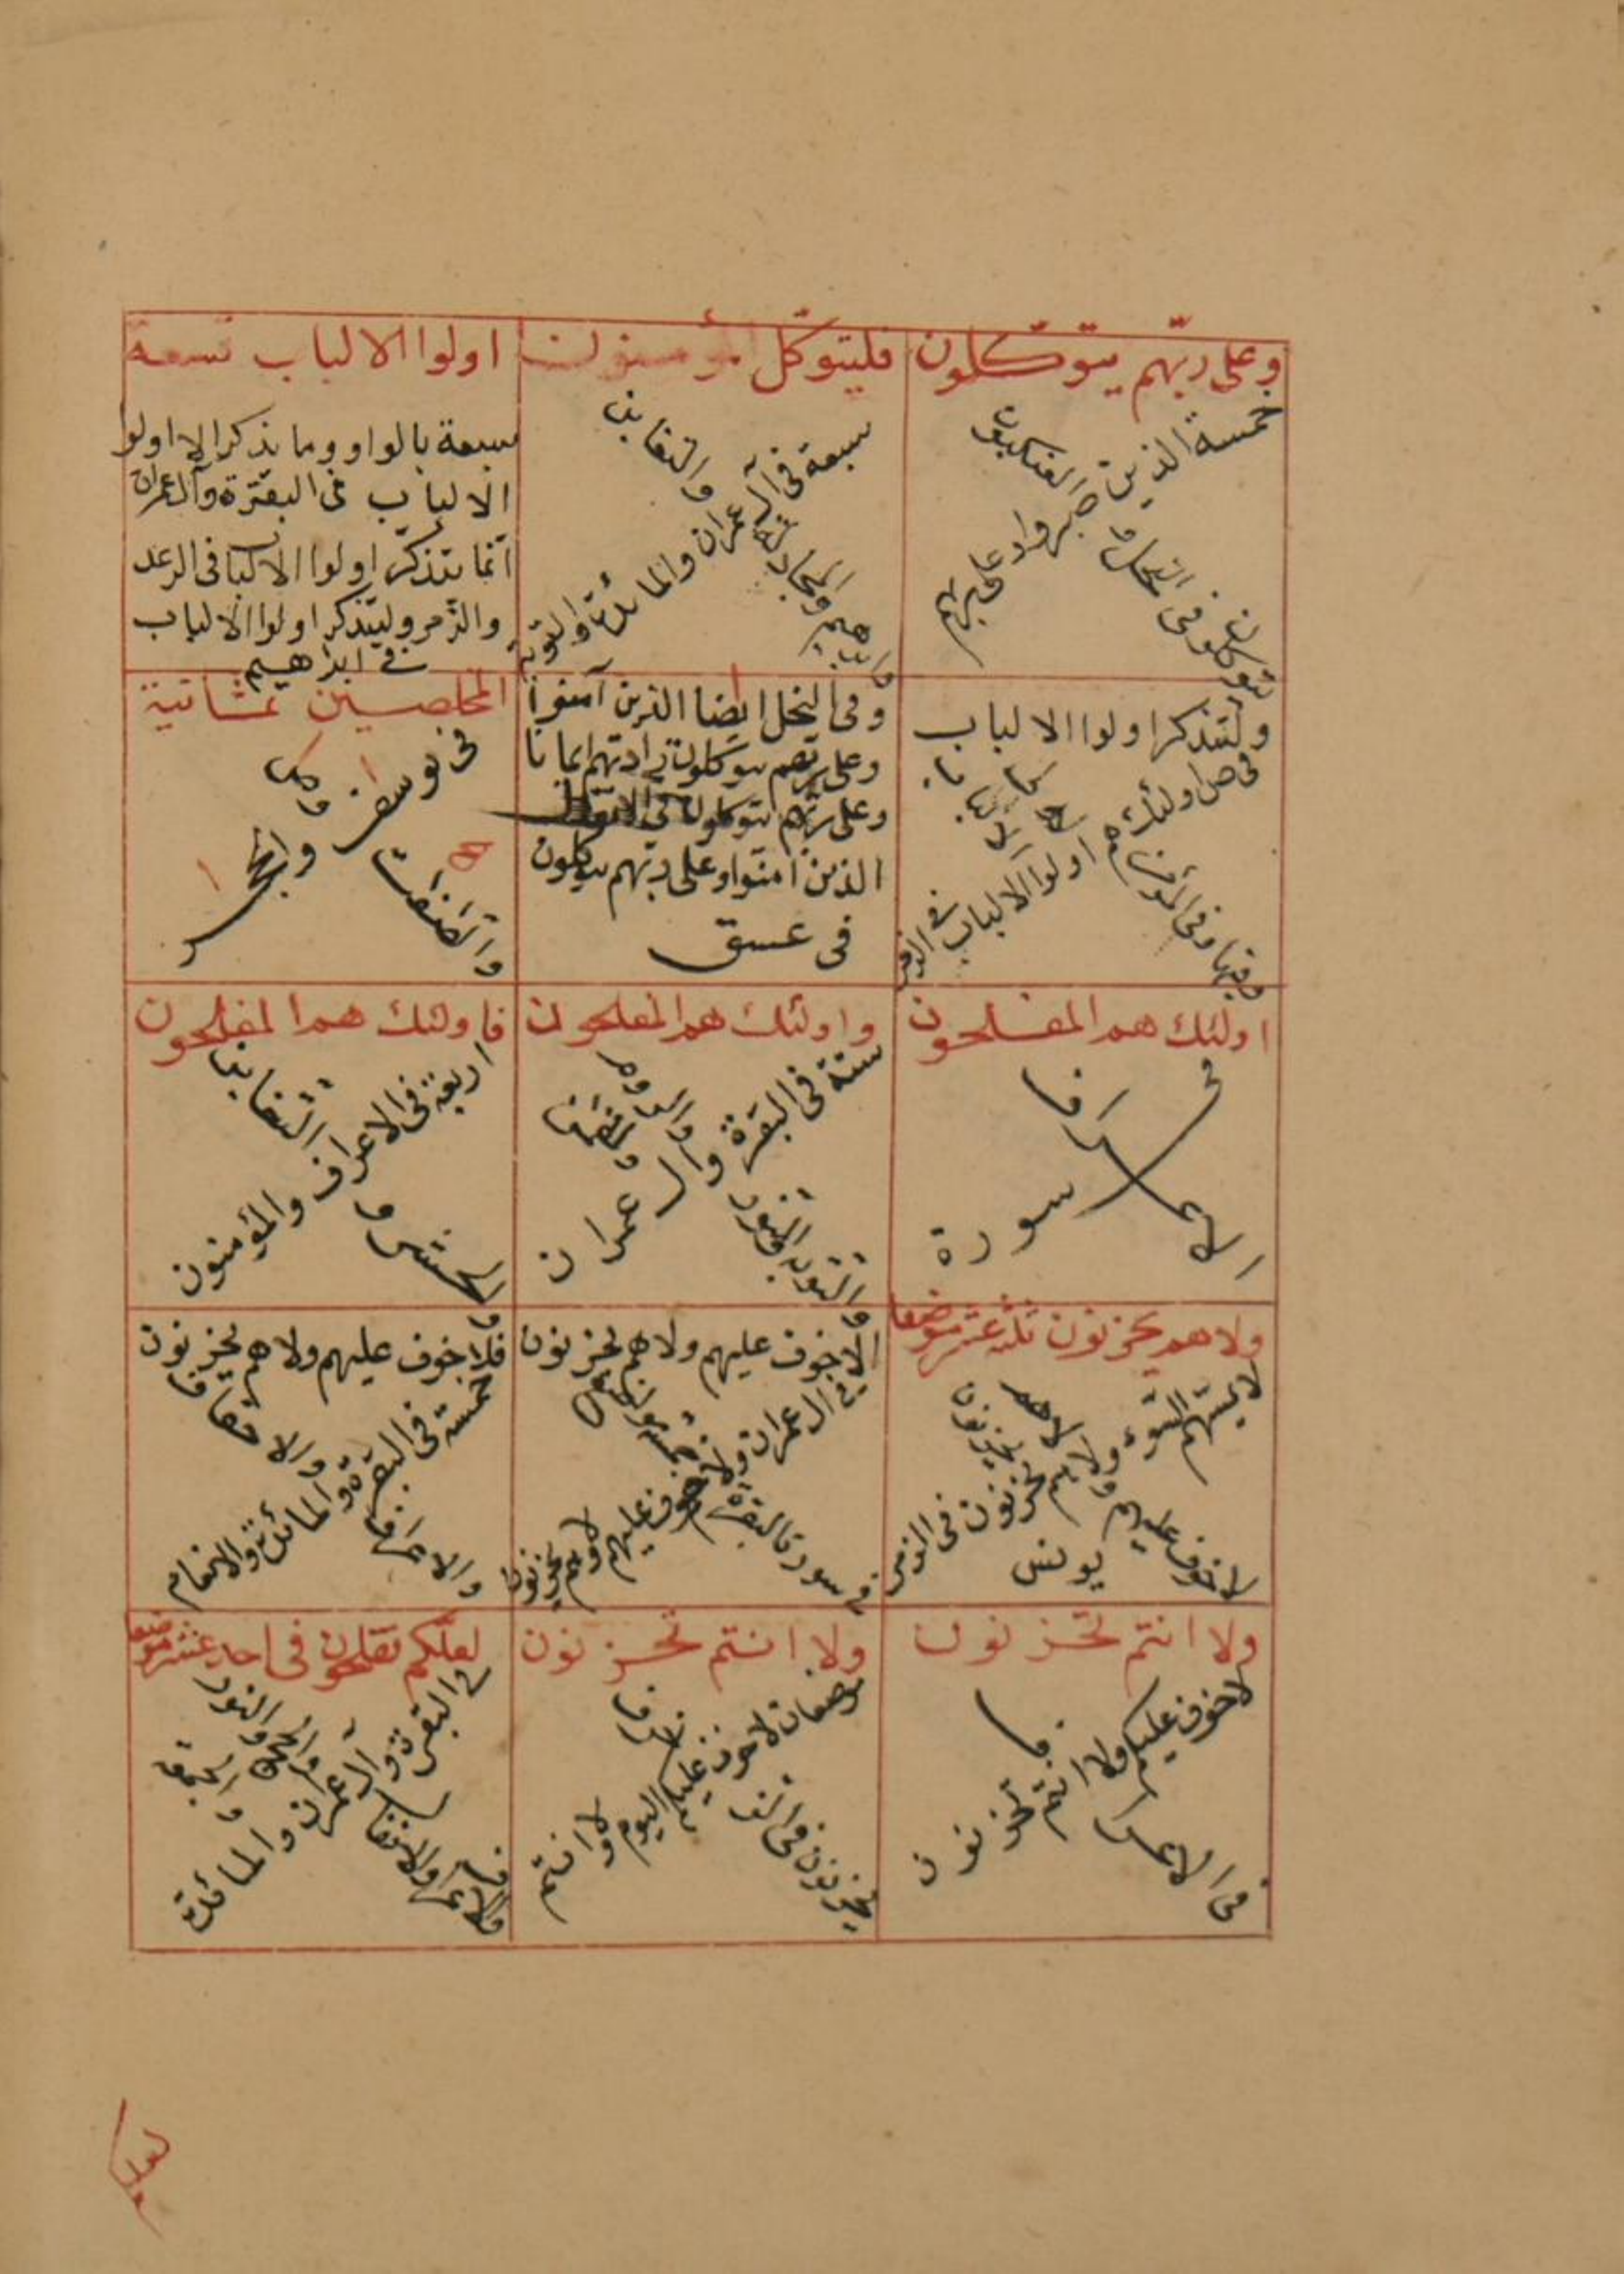 وعلى ربّهم يتوكّلون
خمسة الذين صبروا وعلى ربهم
يتوكلون فى النحل و العنكبوت
فليتوكّل المؤمنون
سبعة فى آل عمران والمائدة والتوبة
وابرهيم والمجادلة والتغابن
اولوا الالباب تسعة
سبعة بالواو وما يذكر الا اولوا
الالباب فى البقرة وآل عمران
انما يتذكر اولوا الالباب فى الرعد
والزّمر وليتذكر اولوا الالباب
فى ابرٰهيم
وليتذكر اولوا الالباب
فى ص اولئك هم اولوا الالباب فى الزمر
وفيها وفى المؤمن
وفى النحل ايضا الذين آمنوا
وعلى ربهم يتوكلون زادتهم ايمانا
وعلى ربّهم يتوكلون فى الانفال
الذين امنوا وعلى ربّهم يتوكلون
فى عسق
المخلصين ثمانية
فى يوسف ١ والحجر ١
والصّٰفّٰت ٥ وص ١
اولئك هم المفلحون
فى سورة
الاعراف
واولئك هم المفلحون
ستة فى البقرة وال عمران
والتوبة والنور والروم ولقمان
فاولئك هم المفلحون
اربعة فى الاعراف والمؤمنون
والحشر و التغابن
ولا هم يحزنون ثلثة عشر موضعا
لا يمسّهم السّوء ولا هم يحزنون فى الزمر
لا خوف عليهم ولا هم يحزنون
يونس
الا خوف عليهم ولا هم يحزنون
فى ال عمران ولا خوف عليهم ولا هم يحزنون
فى سورة البقرة خمسة مواضع
فلا خوف عليهم ولا هم يحزنون
خمسة فى البقرة والمائدة والانعام
والاعراف والاحقاف
ولا انتم تحزنون
لا خوف عليكم ولا انتم تحزنون
فى الاعراف
ولا انتم تحزنون
موضعان لا خوف عليكم اليوم ولا انتم
تحزنون فى الزخرف
لعلّكم تفلحون فى احد عشر موضعا
فى البقرة وآل عمران والمائدة
والاعراف والانفال والحج والنور
والجمعة